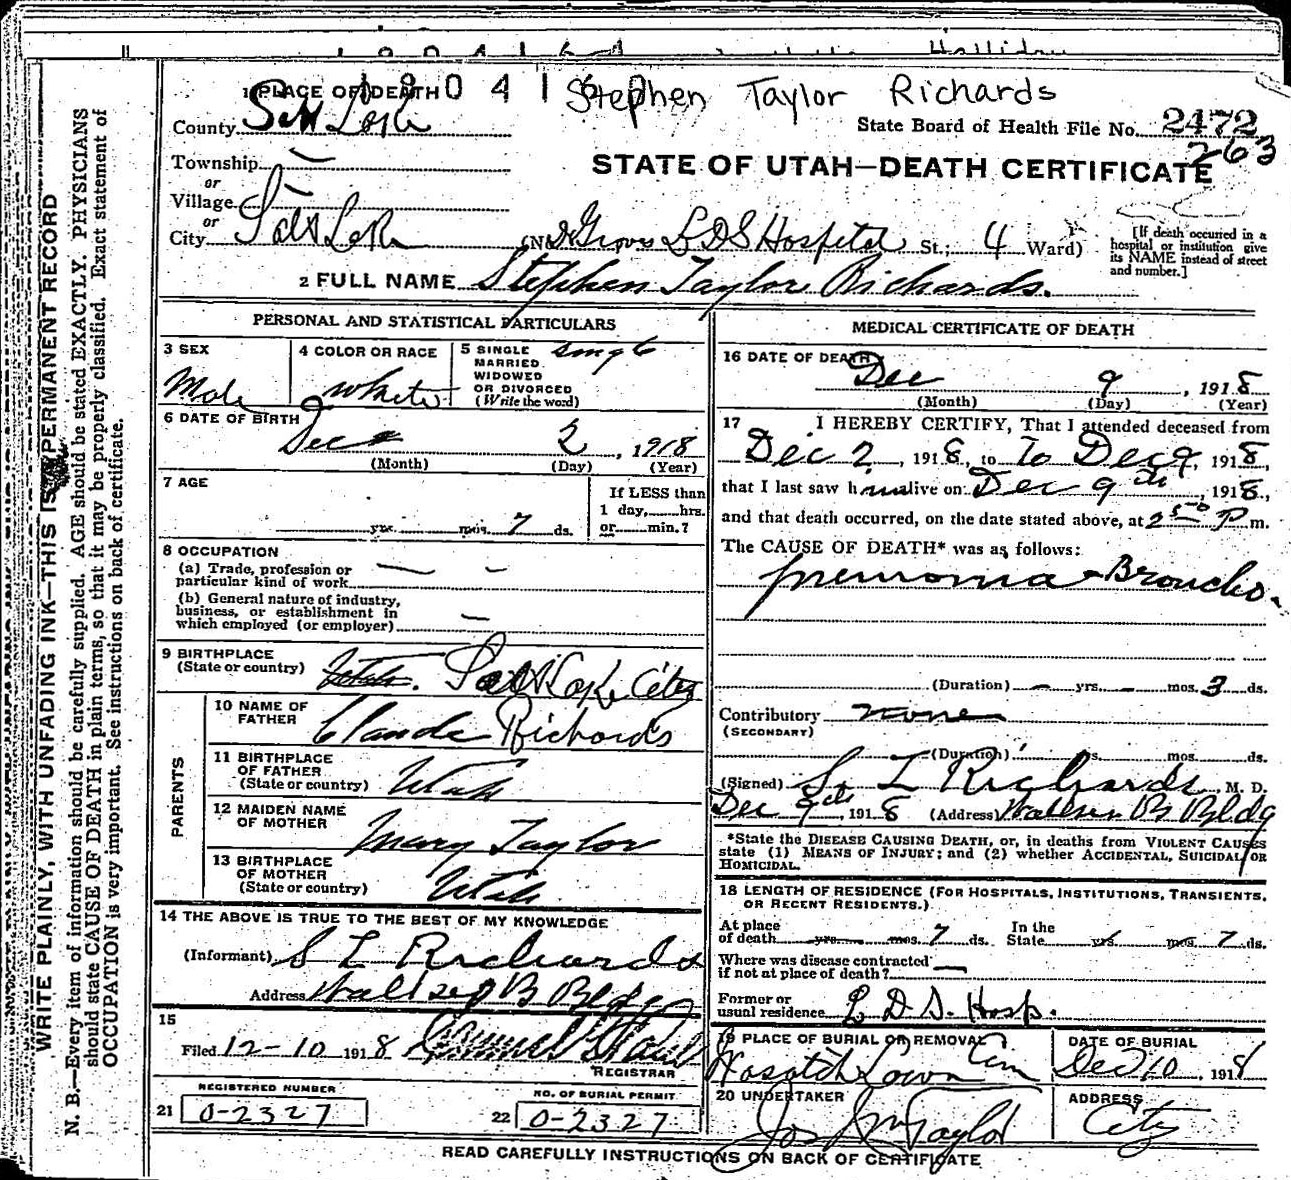 Stephen Taylor Richards
1 PLACE OF DEATH 0 4 1
County Salt Lake
State Board of Health File No. 2472
263
Township —
or
Village —
or
City Salt Lake
STATE OF UTAH—DEATH CERTIFICATE
(No Groves L D S Hospital St.; 4 Ward)
[If death occurred in a
hospital or institution give
its NAME instead of street
and number.]
2 FULL NAME Stephen Taylor Richards.
PERSONAL AND STATISTICAL PARTICULARS
3 SEX
Male
4 COLOR OR RACE
White
5 SINGLE
MARRIED
WIDOWED
OR DIVORCED
(Write the word)
single
6 DATE OF BIRTH
Dec 2, 1918
(Month) (Day) (Year)
7 AGE
yrs. mos. 7 ds.
If LESS than
1 day, hrs.
or min.?
8 OCCUPATION
(a) Trade, profession or
particular kind of work — –
(b) General nature of industry,
business, or establishment in
which employed (or employer) —
9 BIRTHPLACE
(State or country) Utah. Salt Lake City
PARENTS
10 NAME OF
FATHER Claude Richards
11 BIRTHPLACE
OF FATHER
(State or country) Utah
12 MAIDEN NAME
OF MOTHER Mary Taylor
13 BIRTHPLACE
OF MOTHER
(State or country) Utah
14 THE ABOVE IS TRUE TO THE BEST OF MY KNOWLEDGE
(Informant) S L Richards
Address B Bldg
15
Filed 12-10 1918
REGISTRAR
REGISTERED NUMBER
21 0-2327
NO. OF BURIAL PERMIT
22 0-2327
MEDICAL CERTIFICATE OF DEATH
16 DATE OF DEATH
Dec 9, 1918
(Month) (Day) (Year)
17 I HEREBY CERTIFY, That I attended deceased from
Dec 2, 1918, to To Dec 9, 1918,
that I last saw him alive on Dec 9th, 1918,
and that death occurred, on the date stated above, at 2 50 P m.
The CAUSE OF DEATH* was as follows:
pneumonia - Broncho.
(Duration) – yrs. – mos. 3 ds.
Contributory none
(SECONDARY)
(Duration) yrs. mos. ds.
(Signed) S. L Richards, M. D.
Dec 9th, 1918 (Address) B Bldg
*State the DISEASE CAUSING DEATH, or, in deaths from VIOLENT CAUSES
state (1) MEANS OF INJURY; and (2) whether ACCIDENTAL, SUICIDAL OR
HOMICIDAL.
18 LENGTH OF RESIDENCE (FOR HOSPITALS, INSTITUTIONS, TRANSIENTS,
OR RECENT RESIDENTS.)
At place
of death yrs. mos. 7 ds. In the
State yrs. mos. 7 ds.
Where was disease contracted
if not at place of death? —
Former or
usual residence L D S. Hosp.
19 PLACE OF BURIAL OR REMOVAL
Wasatch Lawn Cem
DATE OF BURIAL
Dec 10, 1918
20 UNDERTAKER
Jos Wm Taylor
ADDRESS
City
READ CAREFULLY INSTRUCTIONS ON BACK OF CERTIFICATE
WRITE PLAINLY, WITH UNFADING INK—THIS IS PERMANENT RECORD
N. B.—Every item of information should be carefully supplied. AGE should be stated EXACTLY. PHYSICIANS
should state CAUSE OF DEATH in plain terms, so that it may be properly classified. Exact statement of
OCCUPATION is very important. See instructions on back of certificate.